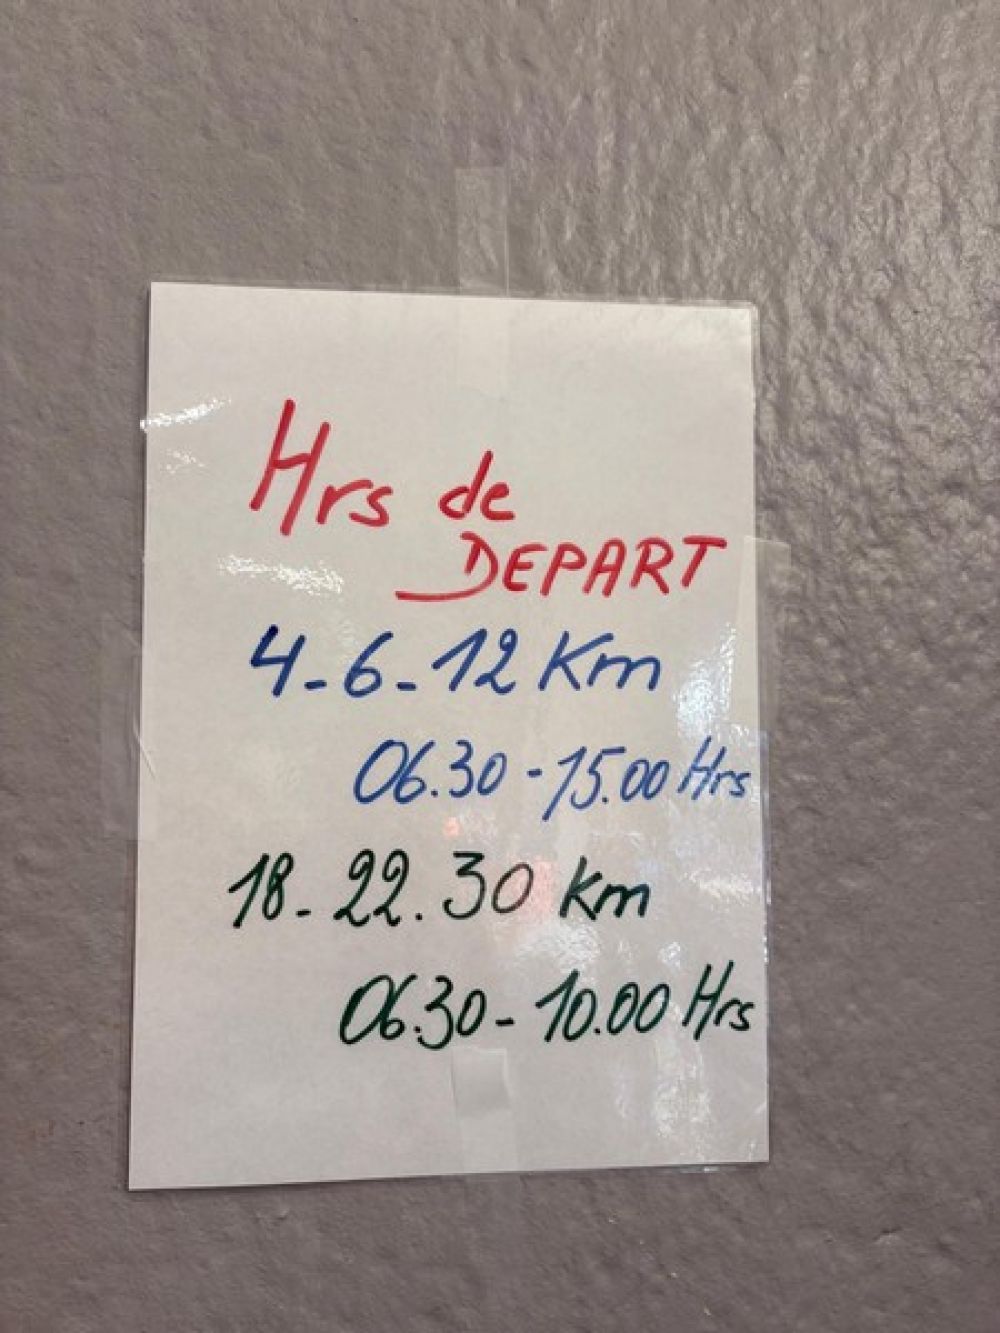 Hrs de
DEPART
4-6-12 Km
06.30-15.00 Hrs
18-22.30 Km
06.30-10.00 Hrs